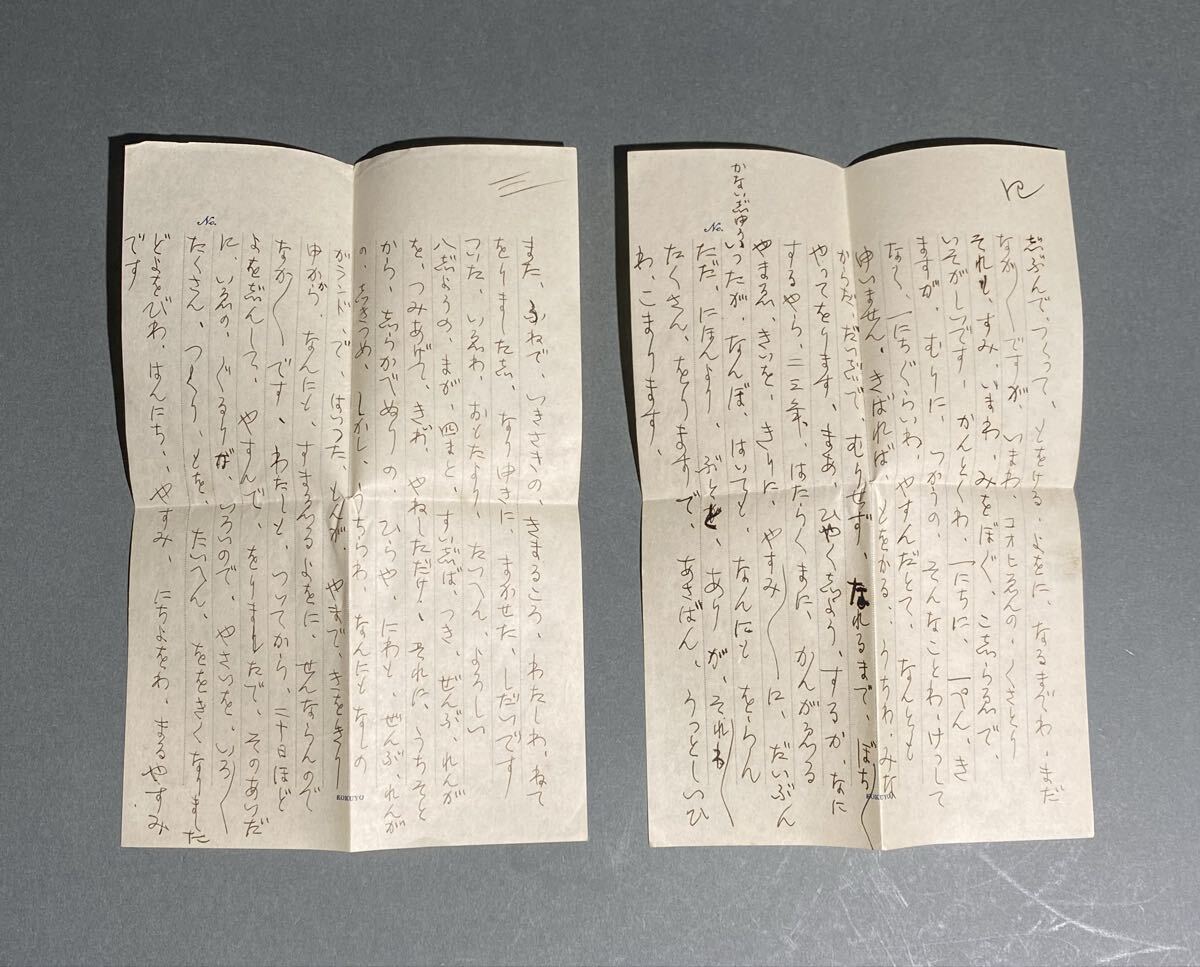 三
また、ふねで、いきさきの、きまるころ、わたしわ、ねて
をりました志、なりゆきに、まかせた、しだいです
ついた、いゑわ、おもたより、たいへん、よろしい
八志゛ようの、まが、四まと、すい志゛ば、つき、ぜんぶ、れんが
を、つみあげて、きわ、やねしただけ、それに、うちそと
から、志らかべぬりの、ひらや、にわも、ぜんぶ、れんが
の、志きつめ、しかし、うちわ、なんにもなしの
がランドで、はつた、とんが、やまで、きをきり
ゆかから、なんにも、すまゐるよをに、せんならんので
なか〱です、わたしも、ついてから、二十日ほど
よを志゛んして、やすんで、をりましたで、そのあいだ
に、いゑの、ぐるりが、いろいので、やさいを、いろ〱
たくさん、つくり、もを、たいへん、ををきくなりました
どよをびわ、はんにち、やすみ、にちよをわ、まるやすみ
です
No.
KOKUYO
四
志゛ぶんで、つくって、もをける、よをに、なるまでわ、まだ
なか〱ですが、いまわ、コオヒゑんの、くさとり
それも、すみ、いまわ、みをほぐ、こ志らゑで
いそがしいです、かんとくわ、一にちに、一ぺん、き
ますが、むりに、つかうの、そんなことわ、けっして
なく、一にちぐらいわ、やすんだとて、なんとも
ゆいません、きばれば、もをかる、うちわ、みな
からだ、だいぶで、むりせず、なれるまで、ぼち〱
やってをります、まあ、ひやく志よう、するか、なに
するやら、二三年、はたらくまに、かんがゑる
やまゑ、きいを、きりに、やすみ〱に、だいぶん
いったが、なんぼ、はいても、なんにも、をらん
ただ、にほんより、ぶとど、ありが、それわ〱
たくさん、をりますで、あさばん、うっとしいひ
わ、こまります、
かない志゛ゆう
No.
KOKUYO